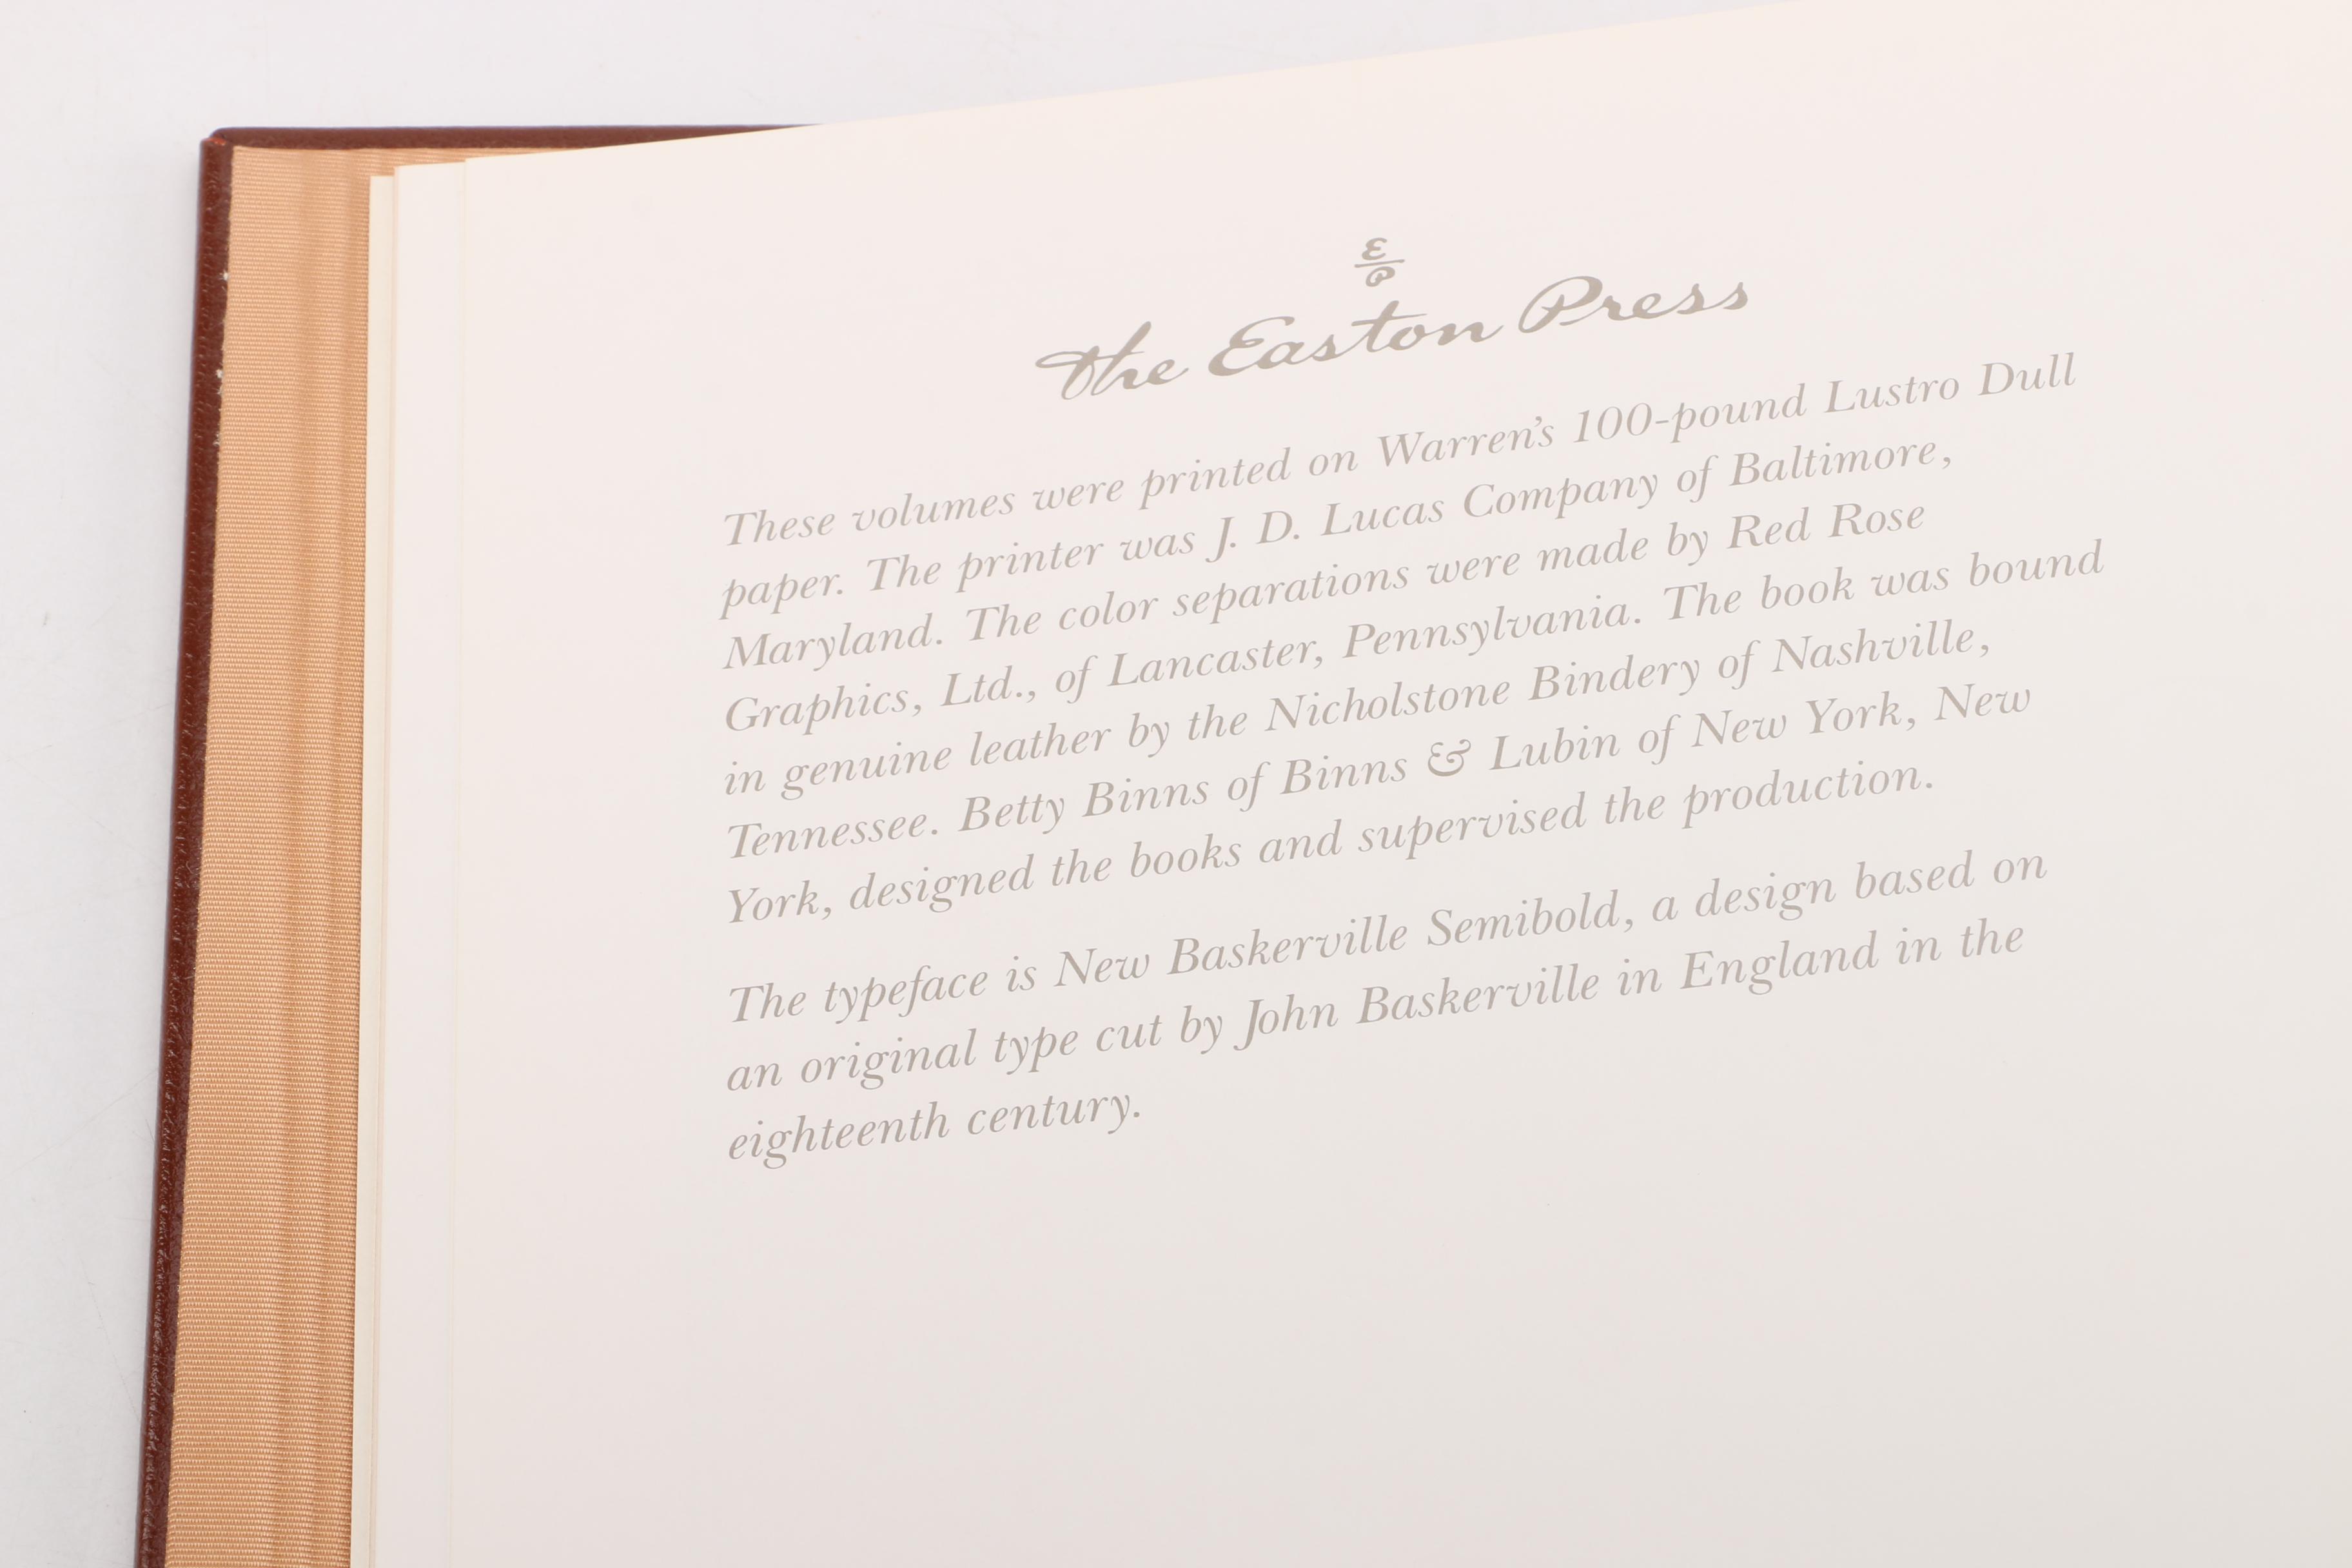 E
P
The Easton Press
These volumes were printed on Warren's 100-pound Lustro Dull
paper. The printer was J. D. Lucas Company of Baltimore,
Maryland. The color separations were made by Red Rose
Graphics, Ltd., of Lancaster, Pennsylvania. The book was bound
in genuine leather by the Nicholstone Bindery of Nashville,
Tennessee. Betty Binns of Binns & Lubin of New York, New
York, designed the books and supervised the production.
The typeface is New Baskerville Semibold, a design based on
an original type cut by John Baskerville in England in the
eighteenth century.